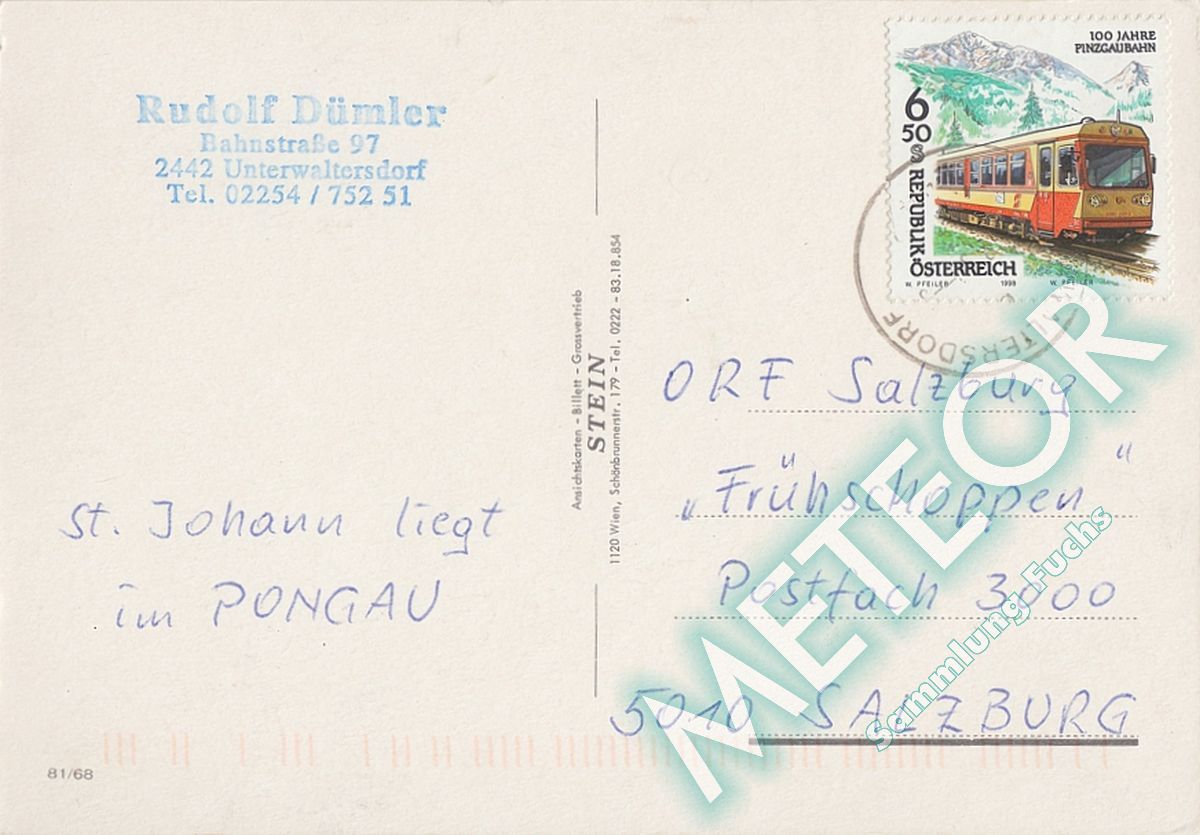 Rudolf Dümler
Bahnstraße 97
2442 Unterwaltersdorf
Tel. 02254 / 752 51
100 JAHRE
PINZGAUBAHN
6
50
S REPUBLIK
ÖSTERREICH
W. PFEILER 1998 W. PFEILER
LTERSDORF
Ansichtskarten - Billett - Grossvertrieb
STEIN
1120 Wien, Schönbrunnerstr. 179 - Tel. 0222 - 83.18.854
St. Johann liegt
im PONGAU
ORF Salzburg
„Frühschoppen“
Postfach 3000
5010 SALZBURG
81/68
METEOR
Sammlung Fuchs